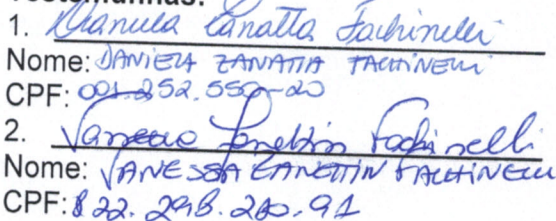 Testemunhas:
1. Daniela Zanatta Fachinelli
Nome: DANIELA ZANATTA FACHINELLI
CPF: 001.252.550-20
2. Vanessa Zanettin Fachinelli
Nome: VANESSA ZANETTIN FACHINELLI
CPF: 822.298.200.91